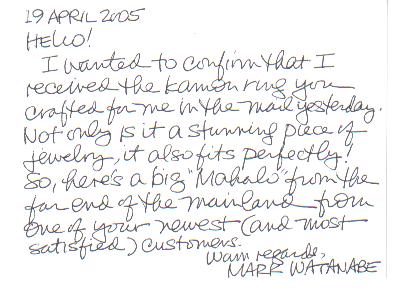 19 APRIL 2005
HELLO!
I wanted to confirm that I
received the kamon ring you
crafted for me in the mail yesterday.
Not only is it a stunning piece of
jewelry, it also fits perfectly!
So, here's a big "Mahalo" from the
far end of the mainland from
one of your newest (and most
satisfied) customers.
Warm regards,
MARK WATANABE